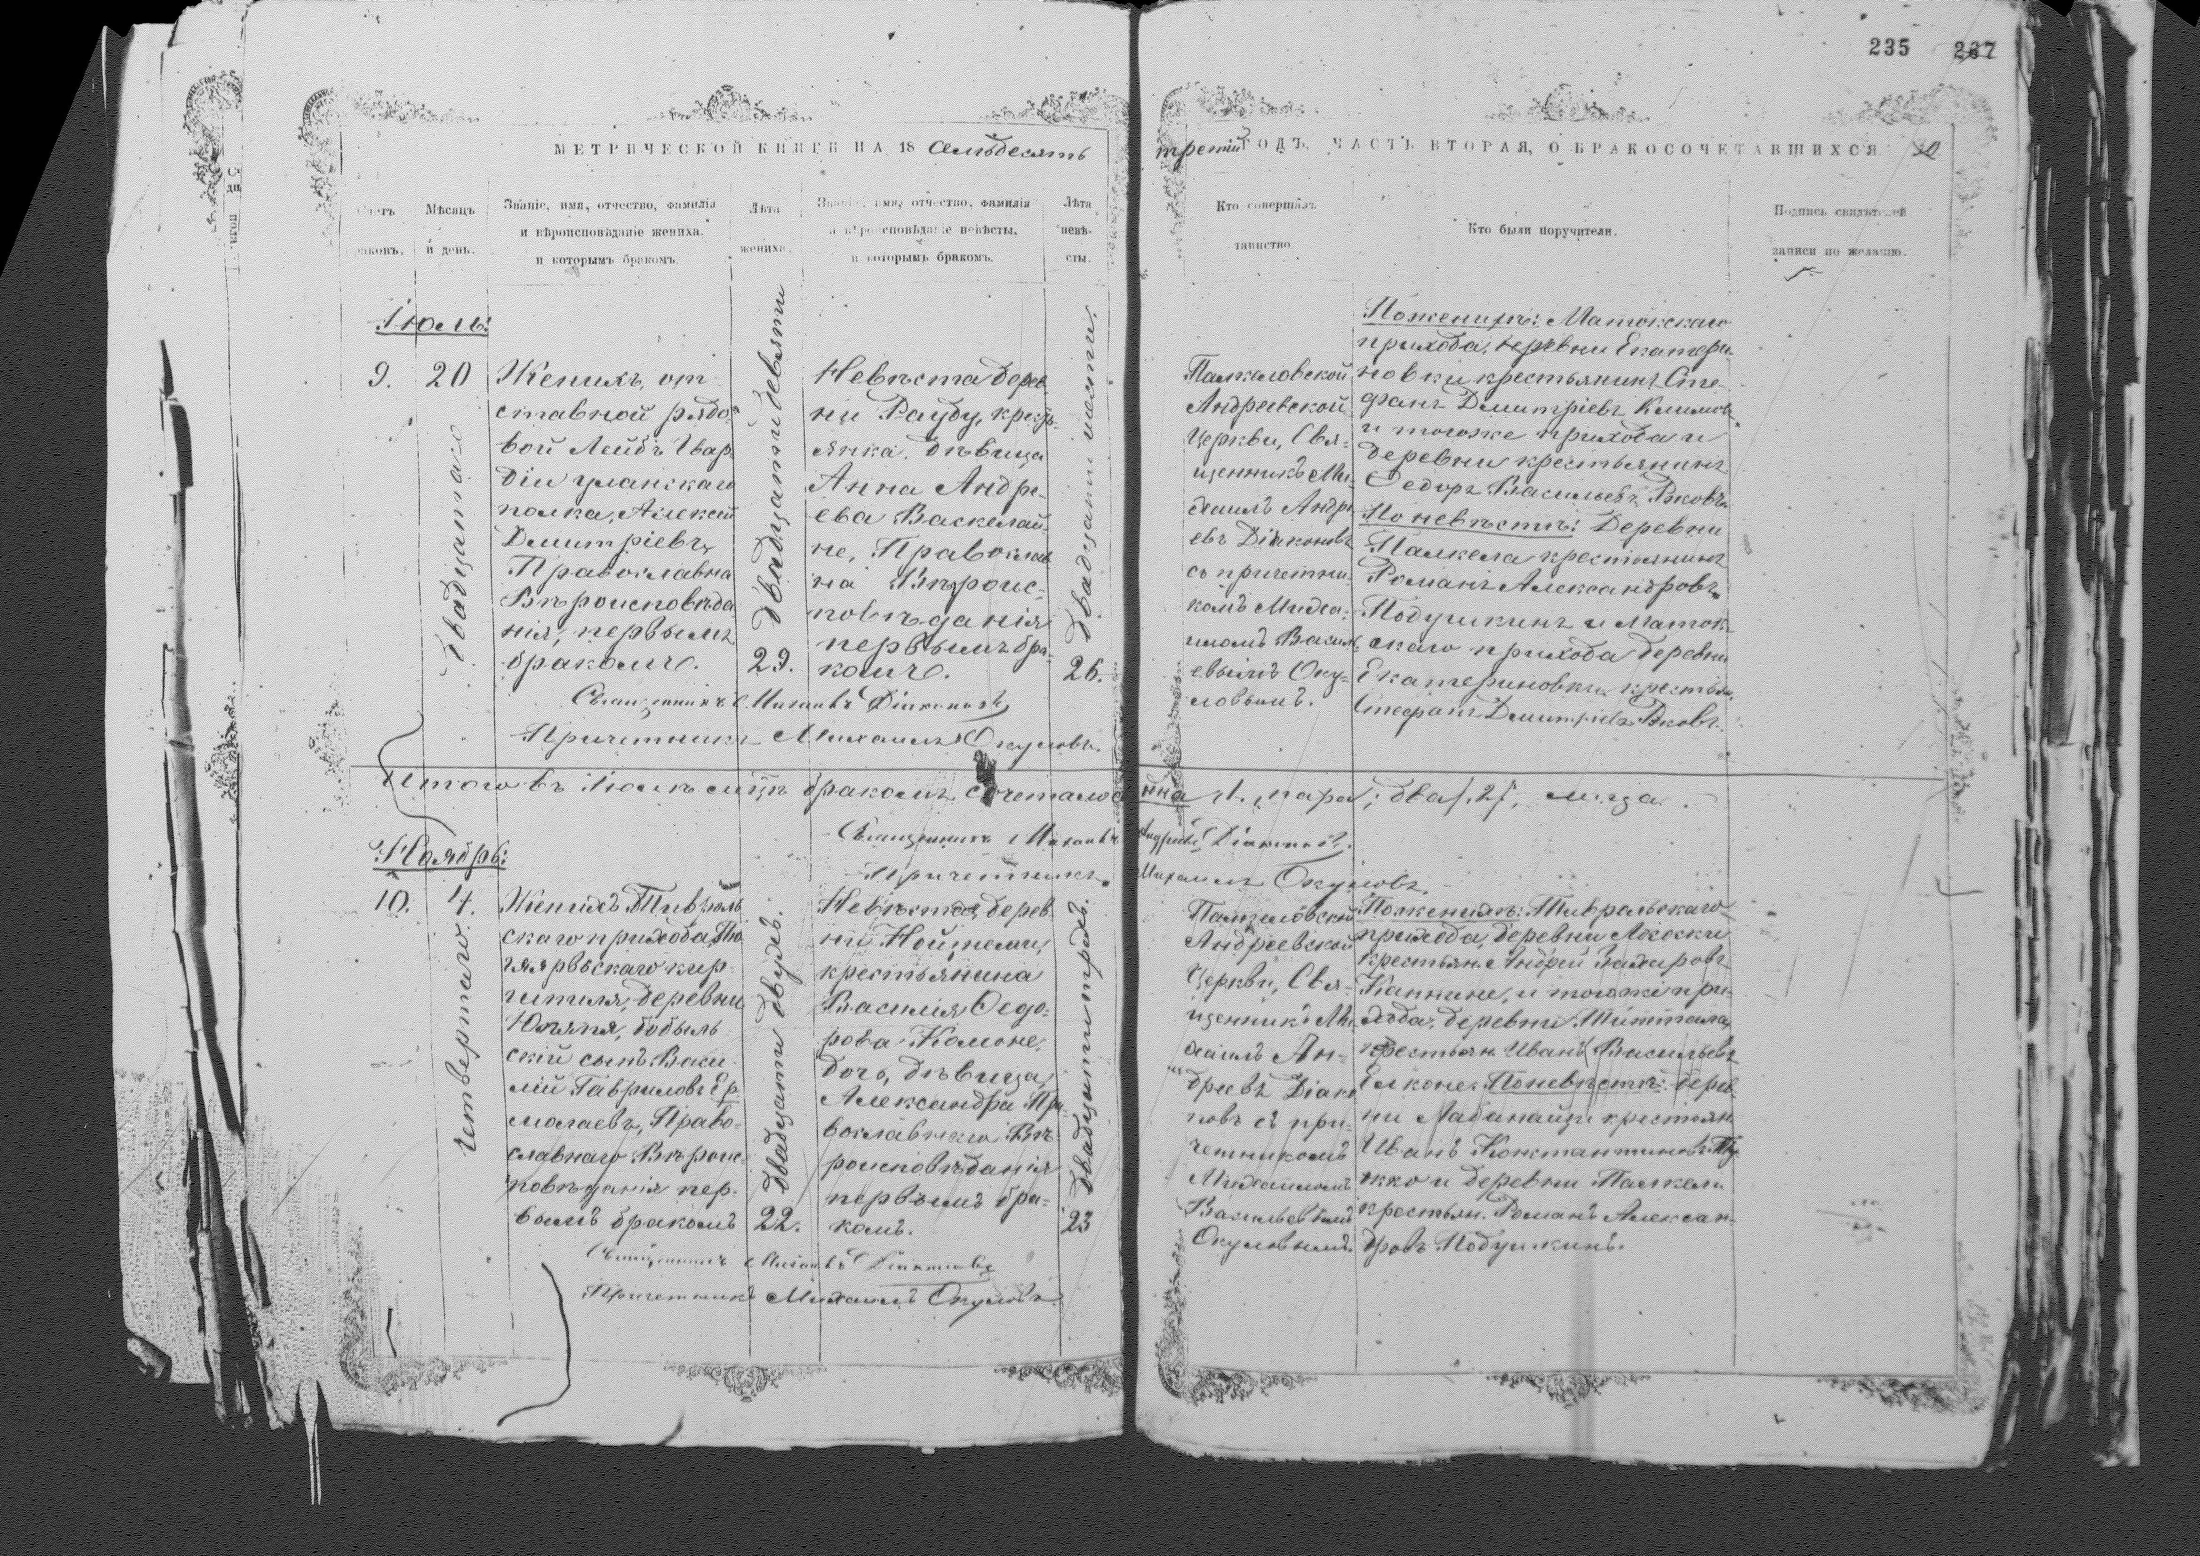 235 237
МЕТРИЧЕСКОЙ КНИГИ НА 18 Семьдесять
третій ГОДЪ, ЧАСТЬ ВТОРАЯ, О БРАКОСОЧЕТАВШИХСЯ
Мѣсяцъ
и день.
Званіе, имя, отчество, фамилія
и вѣроисповѣданіе жениха,
и которымъ бракомъ.
Лѣта
жениха.
Званіе, имя, отчество, фамилія
и вѣроисповѣданіе невѣсты,
и которымъ бракомъ.
Лѣта
невѣ-
сты.
Кто совершалъ
таинство.
Кто были поручители.
Подпись свидѣтелей
записи по желанію.
Іюль:
9.
20
двадцатаго
Женихъ, от
ставной рядо
вой Лейбъ Гвар
діи уланскаго
полка, Алексѣй
Дмитріевъ,
Православна
Вѣроисповѣда
нія, первымъ
бракомъ.
двадцати девяти
29.
Невѣста дерев
ни Рауду, кресть
янка, дѣвица
Анна Андре-
ева Васкелай
не, Православ
на Вѣроис-
повѣданія
первымъ бра-
комъ.
двадцати шести.
26.
Палкеловской
Андреевской
Церкви, Свя-
щенникъ Ми-
хаилъ Андре
евъ Діаконовъ
съ причетни-
комъ Михаи-
ломъ Васил
евымъ Оку-
ловымъ.
По женихѣ: Матокскаго
прихода, деревни Екатери-
новки крестьянинъ Сте
фанъ Дмитріевъ Климовъ
и тогоже прихода и
деревни крестьянинъ
Ѳедоръ Васильевъ Рыковъ
По невѣстѣ: Деревни
Палкела крестьянинъ
Романъ Александровъ
Подушкинъ и Маток-
скаго прихода деревни
Екатериновки, крестьян.
Стефанъ Дмитріевъ Рыковъ.
Священникъ Михаилъ Діаконовъ
Причетникъ Михаилъ Окуловъ.
Итого въ Іюлѣ мцѣ бракомъ сочеталось
1. пара; два /.2/. лица.
Священникъ Михаилъ Андреевъ Діаконовъ.
Причетникъ Михаилъ Окуловъ.
Ноябрь:
10.
4.
четвертаго
Женихъ Тиврольскаго прихода
гитпля, деревни
бобыль
скій сынъ Васи
лій Гавриловъ Ер
молаевъ, Право-
славнаго Вѣроис-
повѣданія пер-
вымъ бракомъ
двадцати двухъ.
22.
Невѣста, дерев
ни Нойтеми,
крестьянина
Василія Ѳедо-
рова Комоне,
дочь, дѣвица,
Александра Пра-
вославнаго Вѣ-
роисповѣданія
первымъ бра-
комъ.
двадцати трехъ.
23
Палкеловской
Андреевской
Церкви, Свя-
щенникъ Ми
хаилъ Ан-
дреевъ Діако
новъ съ при-
четникомъ
Михаиломъ
Васильевымъ
Окуловымъ.
По женихѣ: Тиврольскаго
прихода, деревни
крестьян. Андрей Захаровъ
и тогоже при-
хода, деревни
крестьян. Иванъ Васильевъ
По невѣстѣ: дерев
ни крестьян
Иванъ Константиновъ
кко и деревни Палкела
крестьян. Романъ Алексан-
дровъ Подушкинъ.
Священникъ Михаилъ Діаконовъ
Причетникъ Михаилъ Окуловъ